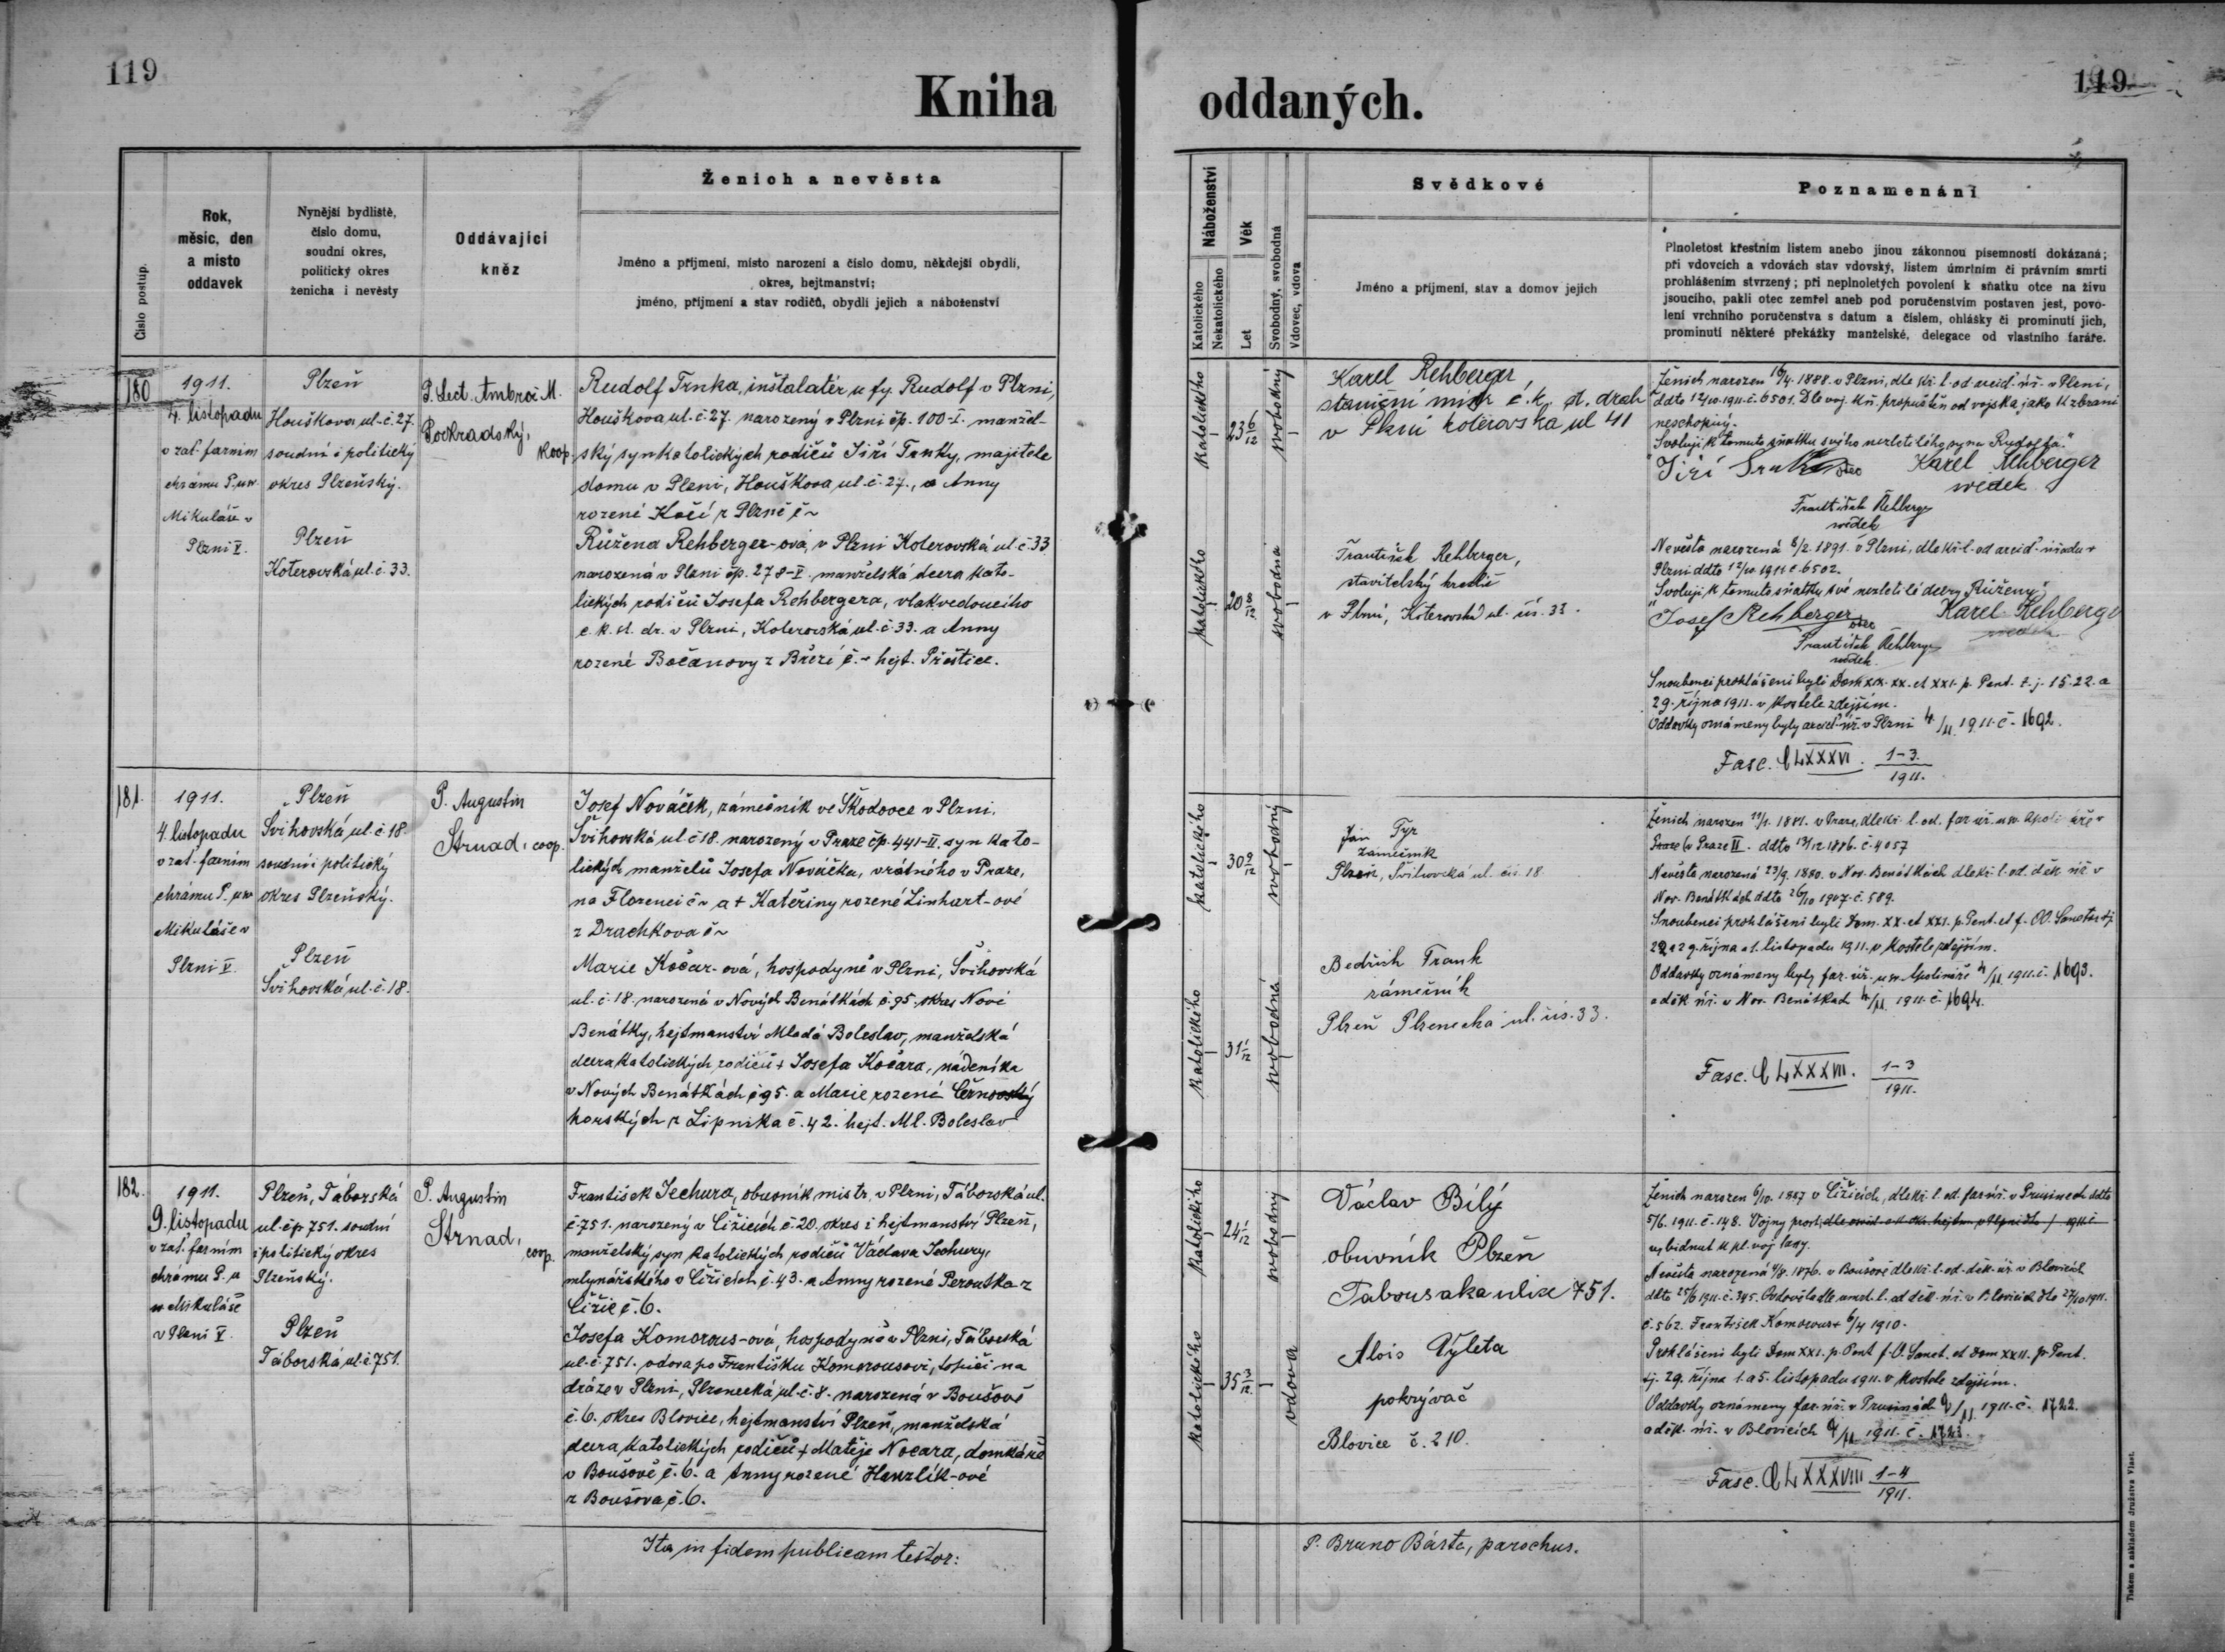 119
Kniha
oddaných.
119
Číslo postup.
Rok,
měsíc, den
a místo
oddavek
Nynější bydliště,
číslo domu,
soudní okres,
politický okres
ženicha i nevěsty
Oddávající
kněz
Ženich a nevěsta
Jméno a příjmení, místo narození a číslo domu, někdejší obydlí,
okres, hejtmanství;
jméno, příjmení a stav rodičů, obydlí jejich a náboženství
Náboženství
Katolického
Nekatolického
Věk
Let
Svobodný, svobodná
Vdovec, vdova
Svědkové
Jméno a příjmení, stav a domov jejich
Poznamenání
Plnoletost křestním listem anebo jinou zákonnou písemností dokázaná;
při vdovcích a vdovách stav vdovský, listem úmrtním či právním smrti
prohlášením stvrzený; při neplnoletých povolení k sňatku otce na živu
jsoucího, pakli otec zemřel aneb pod poručenstvím postaven jest, povo-
lení vrchního poručenstva s datum a číslem, ohlášky či prominutí jich,
prominutí některé překážky manželské, delegace od vlastního faráře.
180
1911.
4. listopadu
v zat. farním
chrámu P. u sv.
Mikuláše v
Plzni V.
Plzeň
Houškova ul. č. 27.
soudní i politický
okres Plzeňský.
Plzeň
Koterovská ul. č. 33.
P. Lect. Ambrož M.
Poděbradský,
koop.
Rudolf Trnka, inštalatér u fy. Rudolf v Plzni,
Houškova ul. č. 27. narozený v Plzni čp. 100-I. manžel-
ský syn katolických rodičů Jiří Trnky, majitele
domu v Plzni, Houškova ul. č. 27., a Anny
rozené Kočí z Plzně č ~
Růžena Rehberger-ová, v Plzni Koterovská ul. č. 33
narozená v Plzni čp. 278-I. manželská dcera kato-
lických rodičů Josefa Rehbergera, vlakvedoucího
c. k. st. dr. v Plzni, Koterovská ul. č. 33. a Anny
rozené Bočanovy z Březí č. ~ hejt. Přeštice.
katolického
23 6/12
svobodný
katolického
20 8/12
svobodná
Karel Rehberger
staniční mistr c. k. st. drah
v Plzni koterovska ul 41
František Rehberger,
stavitelský kreslič
v Plzni, Koterovská ul. čís. 33.
Ženich narozen 16/4. 1888. v Plzni, dle kř. l. od arcid. úř. v Plzni,
ddto 12/10. 1911. č. 6501. Dle voj. kn. propuštěn od vojska, jako k zbrani
neschopný.
Svoluji k tomuto sňatku svého nezletilého syna Rudolfa."
Jiří Trnka otec Karel Rehberger
svědek
František Rehberger
svědek
Nevěsta narozená 8/2. 1891. v Plzni, dle kř. l. od arcid. úřadu v
Plzni ddto 12/10. 1911 č. 6502.
Svoluji k tomuto sňatku své nezletilé dcery Růženy"
Josef Rehberger otec Karel Rehberger
svědek
František Rehberger
svědek
Snoubenci prohlášeni byli Dom XIX. XX. et XXI. p. Pent. t. j. 15. 22. a
29. října 1911. v kostele zdejším.
Oddavky oznámeny byly arcid. úř. v Plzni 4/11 1911. č. 1692.
Fasc. CLXXXVI. 1-3/1911.
181.
1911.
4. listopadu
v zat. farním
chrámu P. u sv
Mikuláše v
Plzni V.
Plzeň
Švihovská ul. č. 18.
soudní i politický
okres Plzeňský.
Plzeň
Švihovská ul. č. 18.
P. Augustin
Strnad, coop.
Josef Nováček, zámečník ve Škodovce v Plzni.
Švihovská ul. č 18. narozený v Praze čp. 441-II. syn kato-
lických manželů Josefa Nováčka, vrátného v Praze,
na Florenci č ~ a + Kateřiny rozené Linhart-ové
z Drachkova č ~
Marie Kočar-ová, hospodyně v Plzni, Švihovská
ul. č. 18. narozená v Nových Benátkách č. 95. okres Nové
Benátky, hejtmanství Mladá Boleslav, manželská
dcera katolických rodičů + Josefa Kočara, nádeníka
v Nových Benátkách č 95. a Marie rozené Černovský
horských z Lipníka č. 42. hejt. Ml. Boleslav
katolického
30 9/12
svobodný
katolického
31 1/12
svobodná
Jan Tyr
zámečník
Plzeň, Švihovská ul. čís. 18.
Bedřich Frank
zámečník
Plzeň Plzenecká ul. čís. 33.
Ženich narozen 11/1. 1881. v Praze, dle kř. l. od. far. úř. u sv. Apoli áře v
Praze (v Praze II. ddto 13/12 1886. č. 4057
Nevěsta narozená 23/9. 1880. v Nov. Benátkách dle kř. l. od. děk. úř. v
Nov. Benátkách ddto 26/10 1907. č. 589.
Snoubenci prohlášeni byli Dom. XX. et XXI. p. Pent. et f. OO. Sanctor. tj.
22 a 29. října a 1. listopadu 1911. v kostele zdejším.
Oddavky oznámeny byly far. úř. u sv. Apolináře 4/11 1911. č. 1693.
a děk. úř. v Nov. Benátkách 4/11 1911. č. 1694.
Fasc. CLXXXVII. 1-3/1911.
182.
1911.
9. listopadu
v zat. farním
chrámu P. u
sv. Mikuláše
v Plzni V.
Plzeň, Táborská
ul. čp 751. soudní
i politický okres
Plzeňský.
Plzeň
Táborská ul. č. 751.
P. Augustin
Strnad,
coop.
František Jechura, obuvník mistr, v Plzni, Táborská ul.
č. 751. narozený v Čižicích č. 20. okres i hejtmanství Plzeň,
manželský syn katolických rodičů Václava Jechury,
mlynářského v Čižicích č. 43. a Anny rozené Peroutka z
Čižic č. 6.
Josefa Komorous-ová, hospodyně v Plzni, Táborská
ul. č. 751. vdova po Františku Komorousovi, topiči na
dráze v Plzni, Plzenecká ul. č. 8. narozená v Boušově
č. 6. okres Blovice, hejtmanství Plzeň, manželská
dcera katolických rodičů + Matěje Nocara, domkáře
v Boušově č. 6. a Anny rozené Hanzlík-ové
z Boušova č. 6.
katolického
24 1/12
svobodný
katolického
35 3/12
vdova
Václav Bílý
obuvník Plzeň
Tabousaka ulice 751.
Alois Výleta
pokrývač
Blovice č. 210.
Ženich narozen 6/10. 1887 v Čižicích, dle kř. l. od. far. úř. v Prusinech ddto
5/6. 1911. č. 148. Vojny prost,
vybídnut k pl. voj taxy.
Nevěsta narozená 4/8. 1876. v Boušově dle kř. l. od. děk. úř. v Blovicích
ddto 25/6 1911. č. 345. Ovdověla dle úmrt. l. od děk. úř. v Blovicích dto 27/10 1911.
č. 562. František Komorous + 6/4 1910.
Prohlášeni byli Dom XXI. p. Pent f. O. Sanct. et Dom XXII. p. Pent.
tj. 29. října 1. a 5. listopadu 1911. v kostele zdejším.
Oddavky oznámeny far. úř. v Prusinách 9/11 1911. č. 1722.
a děk. úř. v Blovicích 9/11 1911. č. 1723.
Fasc. CLXXXVIII 1-4/1911.
Ita in fidem publicam testor:
P. Bruno Bárta, parochus.
Tiskem a nákladem družstva Vlast.